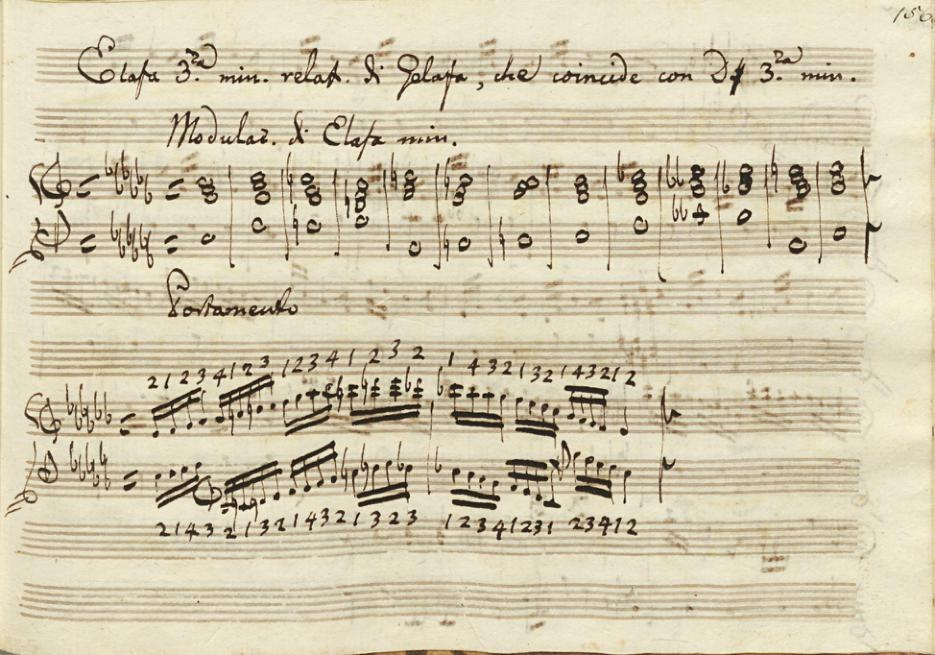 150
Elafa 3.za min. relat. di Gelafa, che coincide con D# 3.za min.
Modulaz. di Elafa min.
Portamento
2 1 2 3 4 1 2 3 1 2 3 4 1 2 3 2 1 4 3 2 1 3 2 1 4 3 2 1 2
2 1 4 3 2 1 3 2 1 4 3 2 1 3 2 3 1 2 3 4 1 2 3 1 2 3 4 1 2